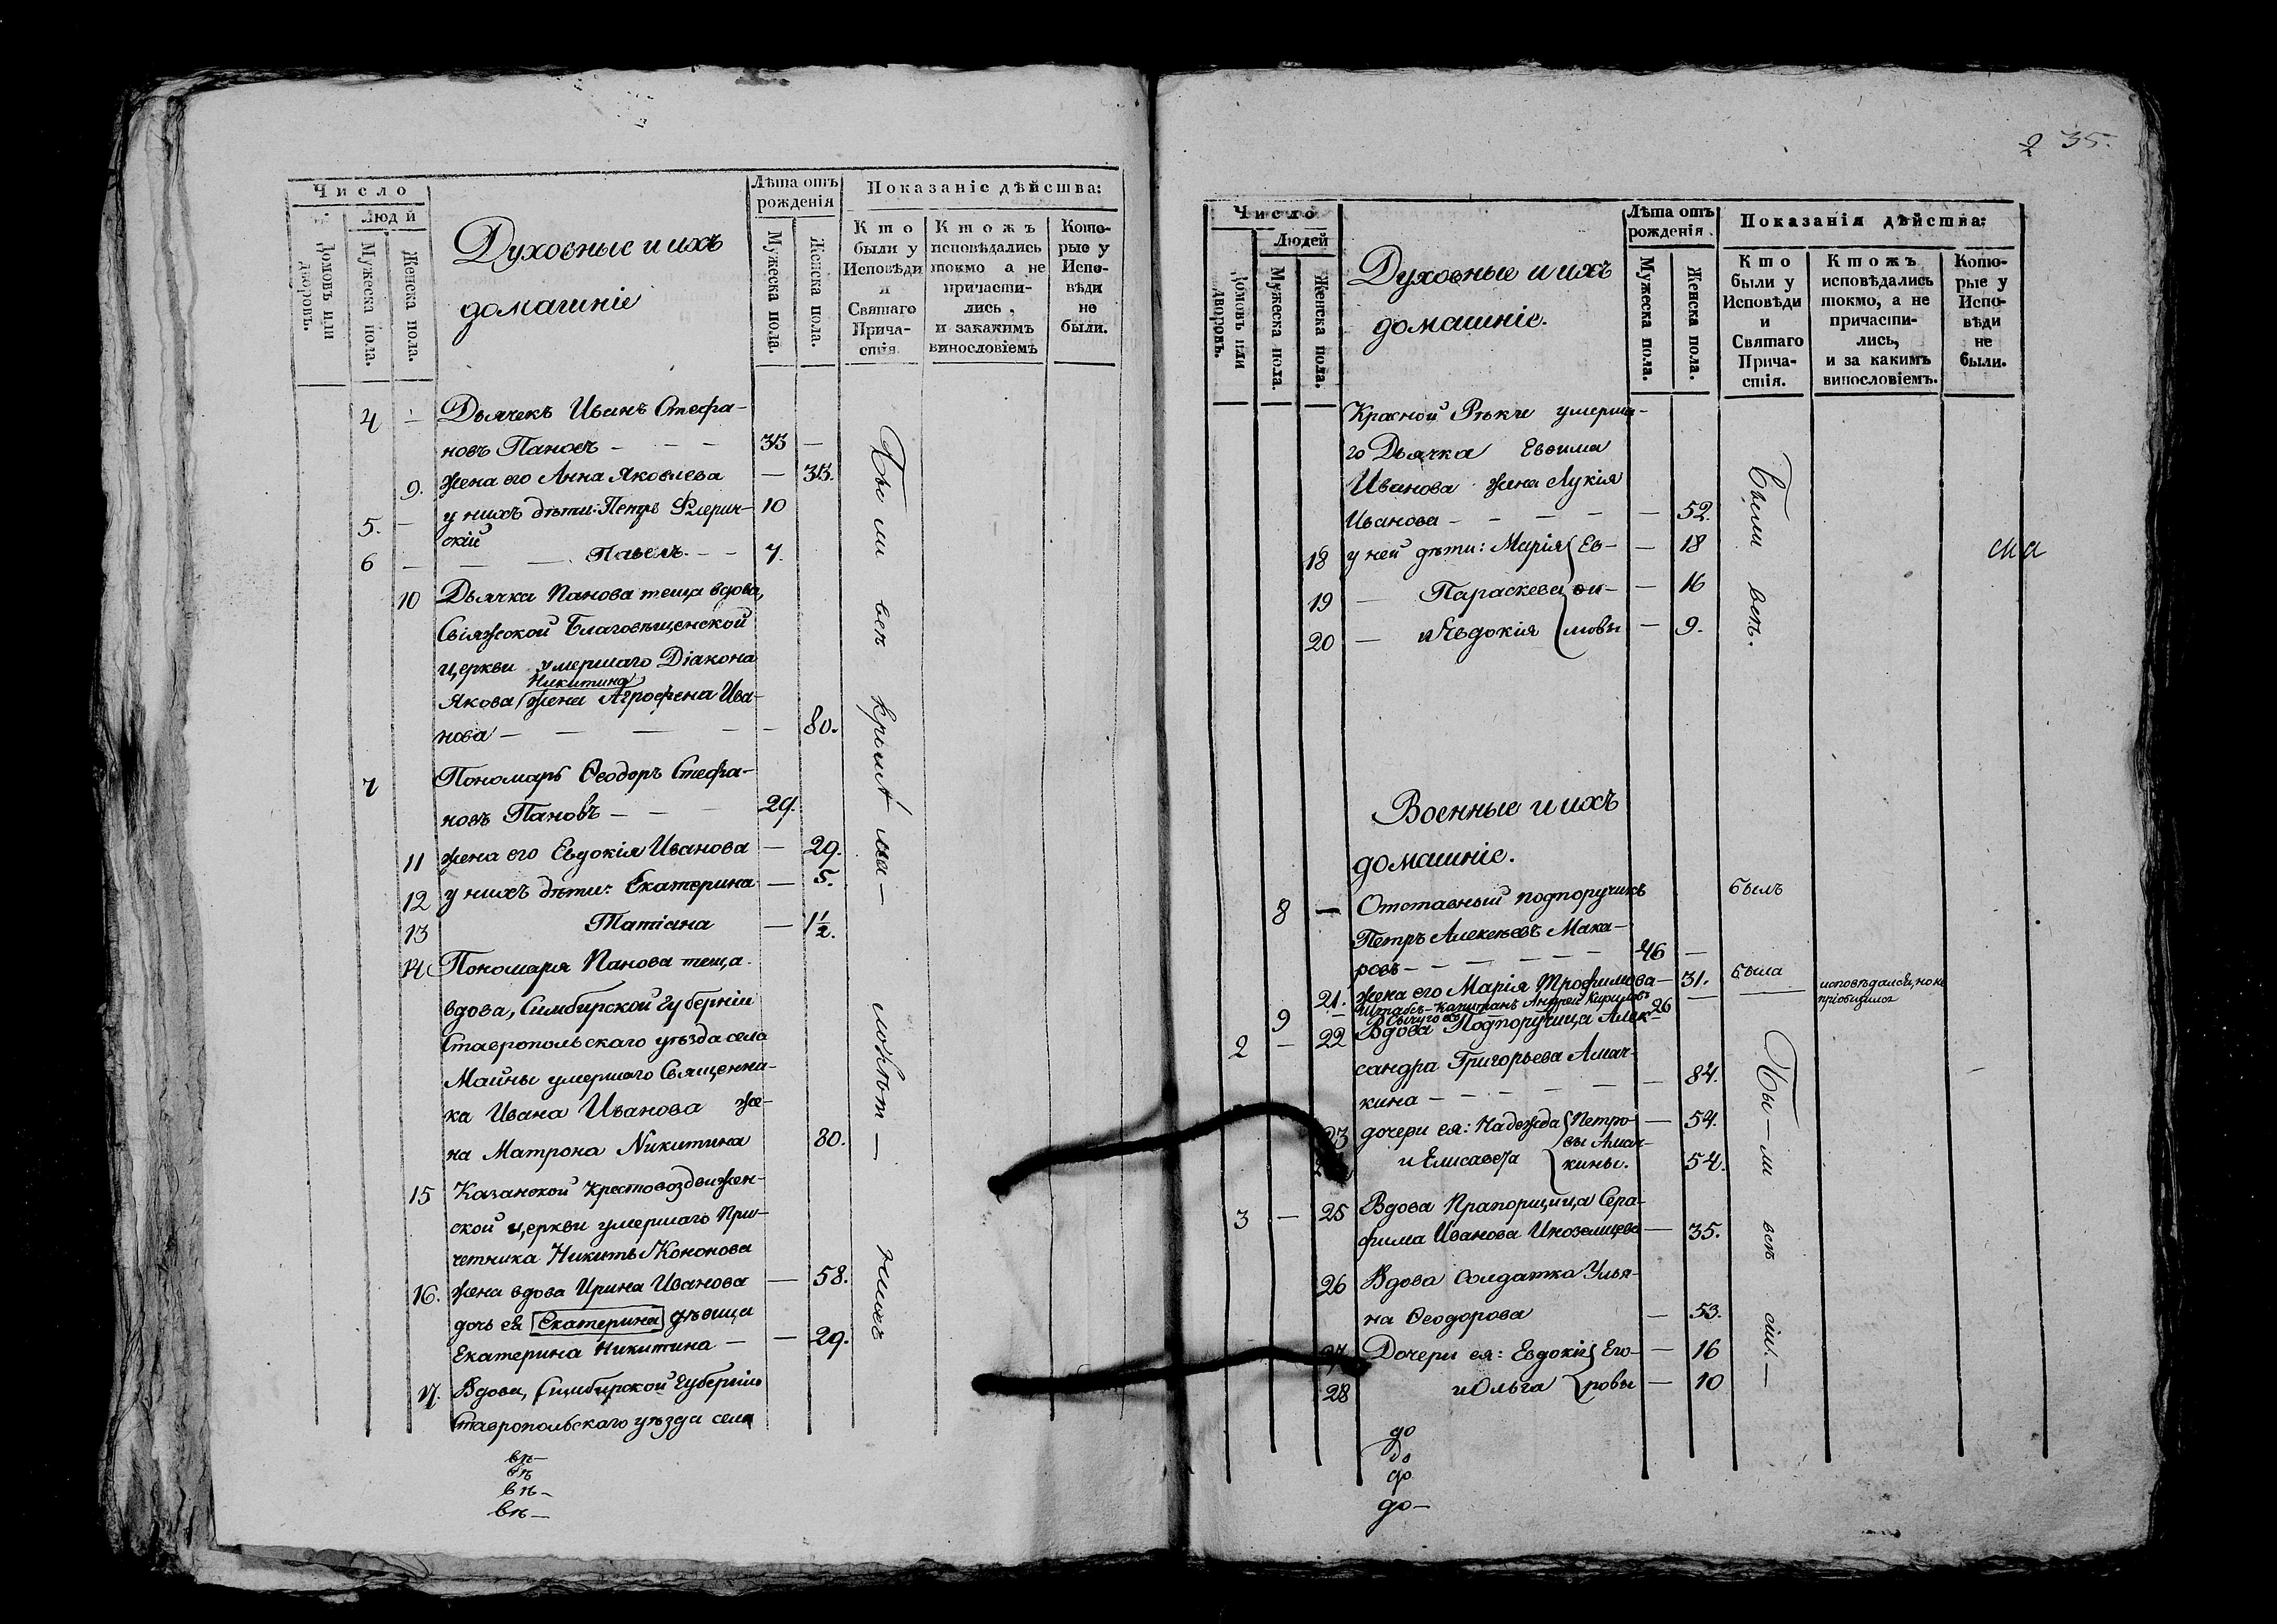 Число
Людей
Домовъ или дворовъ.
Мужеска пола.
Женска пола.
Духовные и ихъ
домашнiе
Лѣта отъ рожденiя
Мужеска пола.
Женска пола.
Показанiе дѣйства:
Кто были у Исповѣди и Святаго Причастiя
Ктожъ исповѣдались токмо а не причастились, и закакимъ винословiемъ
Которые у Исповѣди не были.
4 – Дьячекъ Иванъ Стефа-
новъ Пановъ – – – 33 –
9. жена его Анна Яковлева – 33.
5. – у нихъ дѣти: Петръ 10
скiй
6 – – – Павелъ – – 7.
10 Дьячка Панова теща вдова,
Свiяжской Благовѣщенской
церкви умершаго Дiакона
Никитина
Якова жена Агрофена Ива-
нова – – – – – 80.
7 Пономарь Ѳеодоръ Стефа-
новъ Пановъ – – 29.
11 жена его Евдокiя Иванова – 29.
12 у нихъ дѣти: Екатерина – 5.
13 Татiана – 1½.
14 Пономаря Панова теща
вдова, Симбирской губернiи
Ставропольскаго уѣзда села
Майны умершаго Священни-
ка Ивана Иванова же-
на Матрона Никитина 80.
15 Казанской Крестовоздвижен-
ской церкви умершаго При-
четника Никиты Кононова
16. жена вдова Ирина Иванова – 58.
дочь ея Екатерина дѣвица
Екатерина Никитина – – 29.
17. Вдова, Симбирской Губернiи
Ставропольскаго уѣзда села
Бы ли всѣ
вѣ –
вѣ
вѣ –
вѣ –
2 35.
Число
Людей
Домовъ или дворовъ.
Мужеска пола.
Женска пола.
Духовные и ихъ
домашнiе.
Лѣта отъ рожденiя.
Мужеска пола.
Женска пола.
Показанiя дѣйства:
Кто были у Исповѣди и Святаго Причастiя.
Ктожъ исповѣдались токмо, а не причастились, и за какимъ винословiемъ.
Которые у Исповѣди не были.
Красной Рѣки умерша-
го Дьячка Евѳима
Иванова жена Лукiя
Иванова – – – – – 52.
18 у ней дѣти: Марiя Ев- – 18
19 – Параскева ѳи- – 16
20 – и Евдокiя мовы – 9.
Были всѣ.
Военные и ихъ
домашнiе.
8 – Отставный подпоручикъ былъ
Петръ Алексѣевъ Мака-
ровъ – – – – – – 46 –
21. жена его Марiя Трофимова – 31. была
9 – Штабсъ-Капитанъ Андрей 26 – исповѣдался, но не
2 – 22 Вдова Подпоручица Алек-
сандра Григорьева Амач-
кина – – – – – – 84.
23 дочери ея: Надежда Петро- – 54.
вы Амач-
и Елисавета кины. 54.
3 – 25 Вдова Прапорщица Сера-
фима Иванова Иноземцева – 35.
26 Вдова Солдатка Улья-
на Ѳеодорова – 53.
27 Дочери ея: Евдокiя Его- – 16
28 и Ольга ровы – 10
Бы – ли всѣ сiи. –
до
до
до
до –